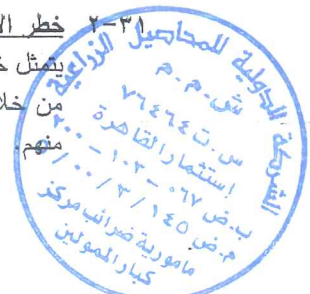 ٣١-٢ خطر الا
يتمثل خ
من خلا
منهم.
الشركة الدولية للمحاصيل الزراعية
ش.م.م
س.ت ٧٦٤٦٤
إستثمار القاهرة
ب.ض ٠٦٧ - ١٠٣ - ٢٠٠
م.ض ١٤٥ / ٣ / ٠٠
مأمورية ضرائب مركز
كبار الممولين